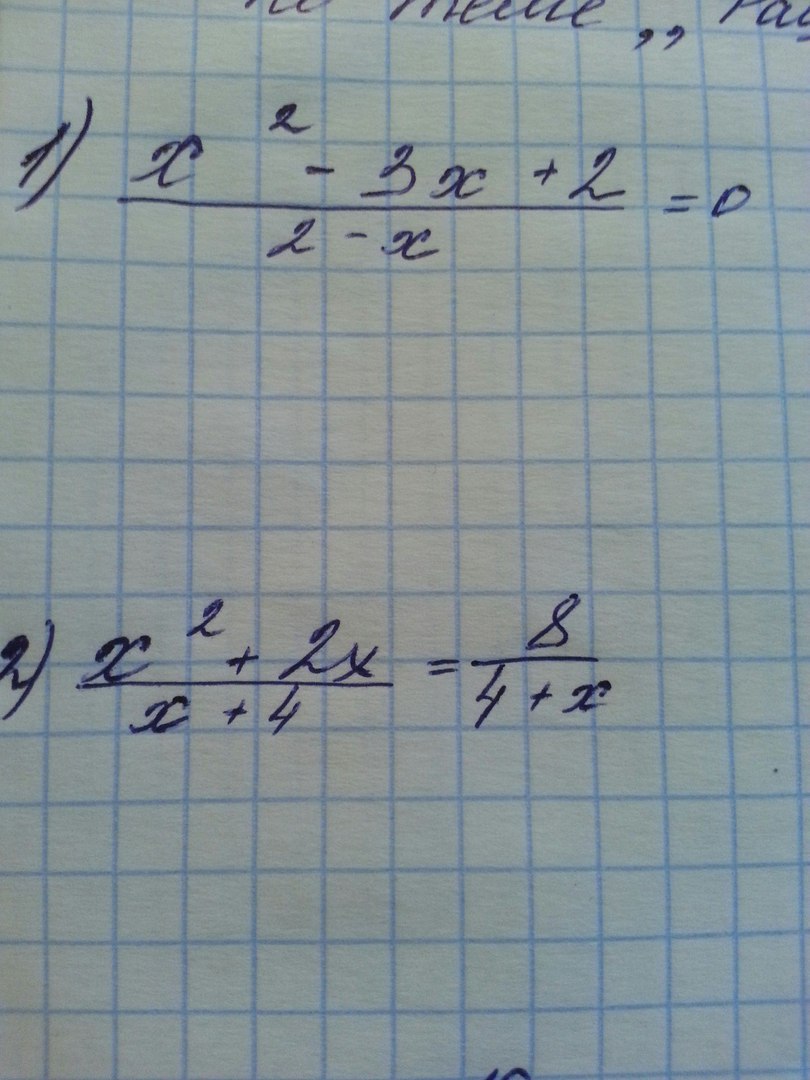 по теме ,,
1) x² - 3x + 2 / 2 - x = 0
2) x² + 2x / x + 4 = 8 / 4 + x